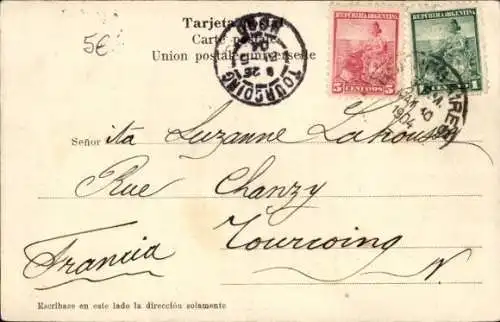 Tarjeta
Carte
Union postale universelle
5€
TOURCOING
NORD
REPUBLICA ARGENTINA
5 CENTAVOS 5
REPUBLICA ARGENTINA
1
10
1904
Señorita Suzanne
Rue Chanzy
Tourcoing
Francia
N
Escríbase en este lado la dirección solamente